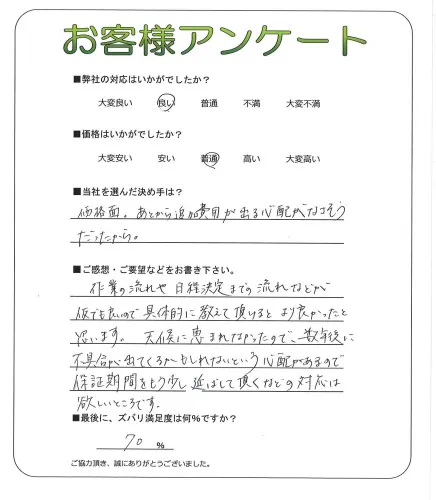 お客様アンケート
■弊社の対応はいかがでしたか？
大変良い 良い 普通 不満 大変不満
■価格はいかがでしたか？
大変安い 安い 普通 高い 大変高い
■当社を選んだ決め手は？
価格面。あとから追加費用が出る心配がなさそう
だったから。
■ご感想・ご要望などをお書き下さい。
作業の流れや日程決定までの流れなどが
仮でも良いので具体的に教えて頂けるとより良かったと
思います。天候に恵まれなかったので、数年後に
不具合が出てくるかもしれないという心配があるので
保証期間をもう少し延ばして頂くなどの対応は
欲しいところです。
■最後に、ズバリ満足度は何％ですか？
70 ％
ご協力頂き、誠にありがとうございました。